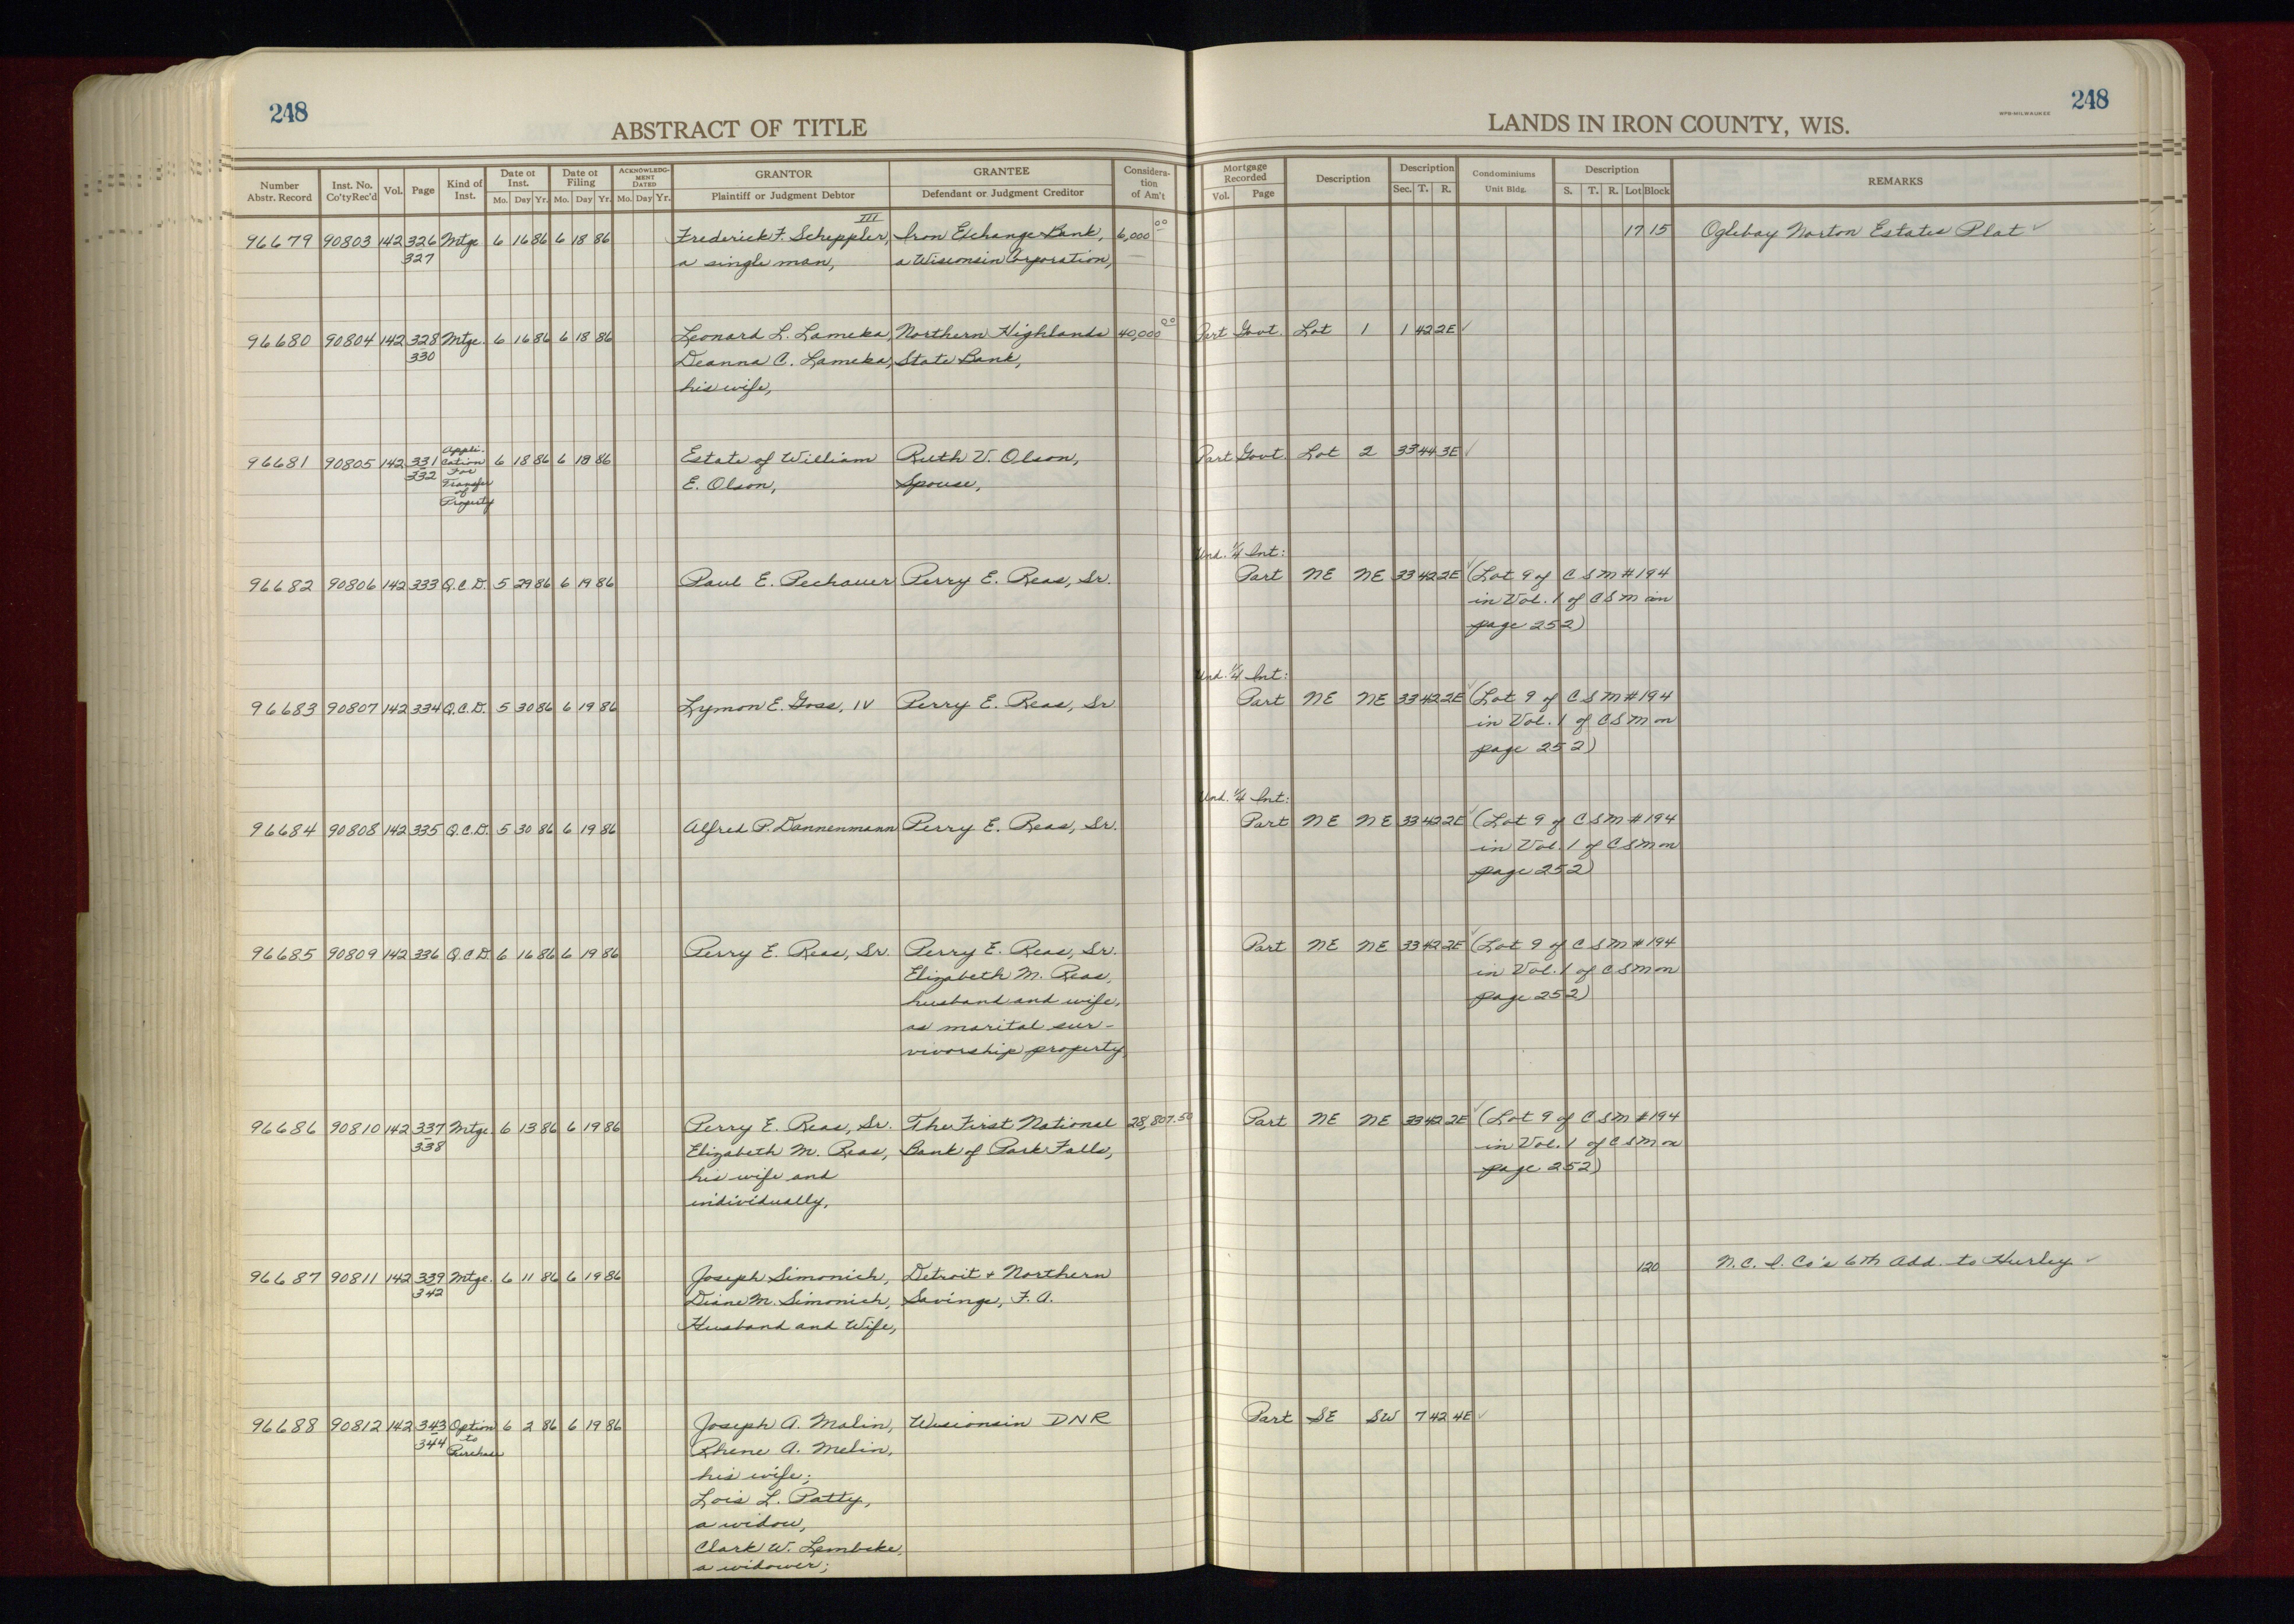 248
ABSTRACT OF TITLE
LANDS IN IRON COUNTY, WIS.
WPB-MILWAUKEE
248
Number Abstr. Record | Inst. No. Co'tyRec'd | Vol. | Page | Kind of Inst. | Date of Inst. Mo. Day Yr. | Date of Filing Mo. Day Yr. | ACKNOWLEDG-MENT DATED Mo. Day Yr. | GRANTOR Plaintiff or Judgment Debtor | GRANTEE Defendant or Judgment Creditor | Considera-tion of Am't | Mortgage Recorded Vol. Page | Description | Description Sec. T. R. | Condominiums Unit Bldg. | Description S. T. R. Lot Block | REMARKS
III
96679 90803 142 326 Mtge 6 16 86 6 18 86 Frederick F. Scheppler, Iron Exchange Bank, 6,000 00 17 15 Oglebay Norton Estates Plat ✓
327 a single man, a Wisconsin Corporation,
96680 90804 142 328 Mtge. 6 16 86 6 18 86 Leonard L. Lameka, Northern Highlands 40,000 00 Part Govt. Lot 1 1 42 2E ✓
330 Deanna C. Lameka, State Bank,
his wife,
96681 90805 142 331 Appli- 6 18 86 6 18 86 Estate of William Ruth V. Olson, Part Govt. Lot 2 33 44 3E ✓
332 cation E. Olson, Spouse,
For
Transfer
of
Property
Und. 1/4 Int:
96682 90806 142 333 Q.C.D. 5 29 86 6 19 86 Paul E. Pechauer Perry E. Reas, Sr. Part NE NE 33 42 2E ✓ (Lot 9 of CSM #194
in Vol. 1 of CSM on
page 252)
Und. 1/4 Int:
96683 90807 142 334 Q.C.D. 5 30 86 6 19 86 Lymon E. Goss, IV Perry E. Reas, Sr Part NE NE 33 42 2E ✓ (Lot 9 of CSM #194
in Vol. 1 of CSM on
page 252)
Und. 1/4 Int:
96684 90808 142 335 Q.C.D. 5 30 86 6 19 86 Alfred P. Dannenmann Perry E. Reas, Sr. Part NE NE 33 42 2E ✓ (Lot 9 of CSM #194
in Vol. 1 of CSM on
page 252)
96685 90809 142 336 Q.C.D. 6 16 86 6 19 86 Perry E. Reas, Sr. Perry E. Reas, Sr. Part NE NE 33 42 2E ✓ (Lot 9 of CSM #194
Elizabeth M. Reas, in Vol. 1 of CSM on
husband and wife, page 252)
as marital sur-
vivorship property,
96686 90810 142 337 Mtge. 6 13 86 6 19 86 Perry E. Reas, Sr. The First National 28,807.50 Part NE NE 33 42 2E ✓ (Lot 9 of CSM #194
338 Elizabeth M. Reas, Bank of Park Falls, in Vol. 1 of CSM on
his wife and page 252)
individually,
96687 90811 142 339 Mtge. 6 11 86 6 19 86 Joseph Simonich, Detroit + Northern 120 N.C.I. Co's 6th Add. to Hurley ✓
342 Diane M. Simonich, Savings, F.A.
Husband and Wife,
96688 90812 142 343 Option 6 2 86 6 19 86 Joseph A. Malin, Wisconsin DNR Part SE SW 7 42 4E ✓
344 to Rhene A. Melin,
Purchase his wife;
Lois L. Patty,
a widow,
Clark W. Lembcke,
a widower;